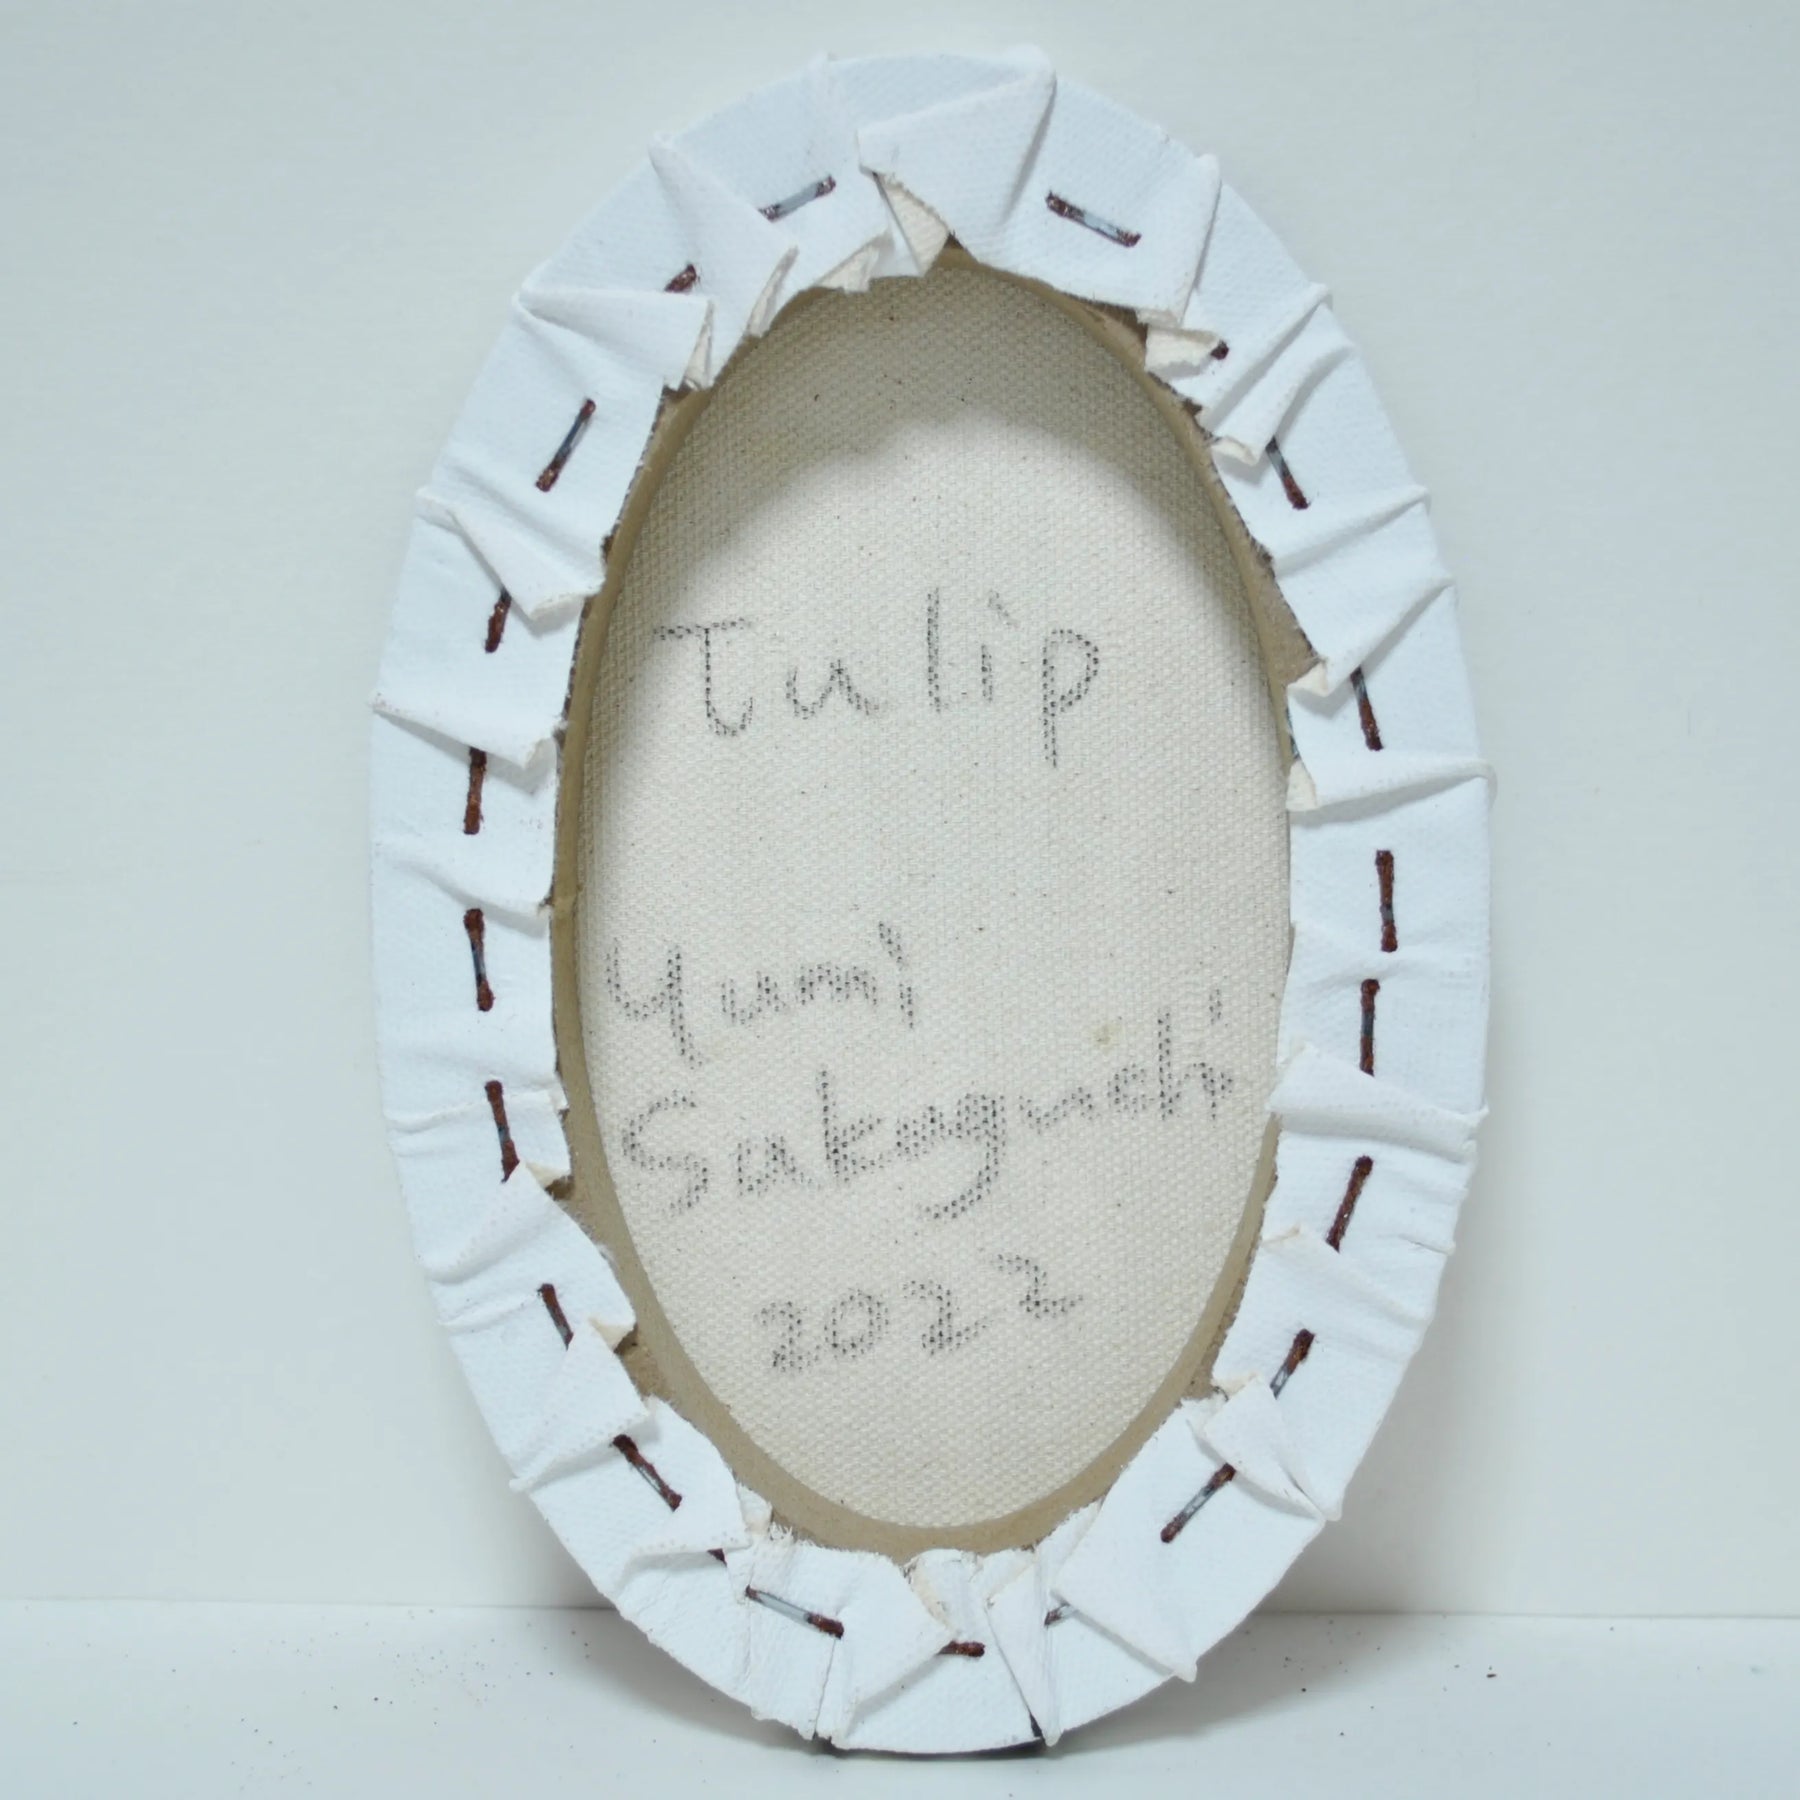 Tulip
Yumi
Sakaguchi
2022